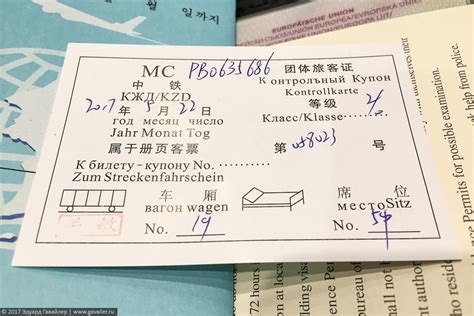 월 일까지
EUROPÄISCHE UNION
MC PB0635686 团体旅客证
中 铁 К онтролъный Купон
КЖД/KZD Kontrollkarte
2017 年 5 月 22 日 等级
год месяц число Класс/Klasse
Jahr Monat Tog
属于册页客票 第 058023 号
К билету - купону No.
Zum Streckenfahrschein
车 厢 席 位
вагон wagen местоSitz
No. 19 No. 54
Permits for possible examination.
help from police.
72 hours
© 2017 Эдуард Гавайлер | www.gavailer.ru